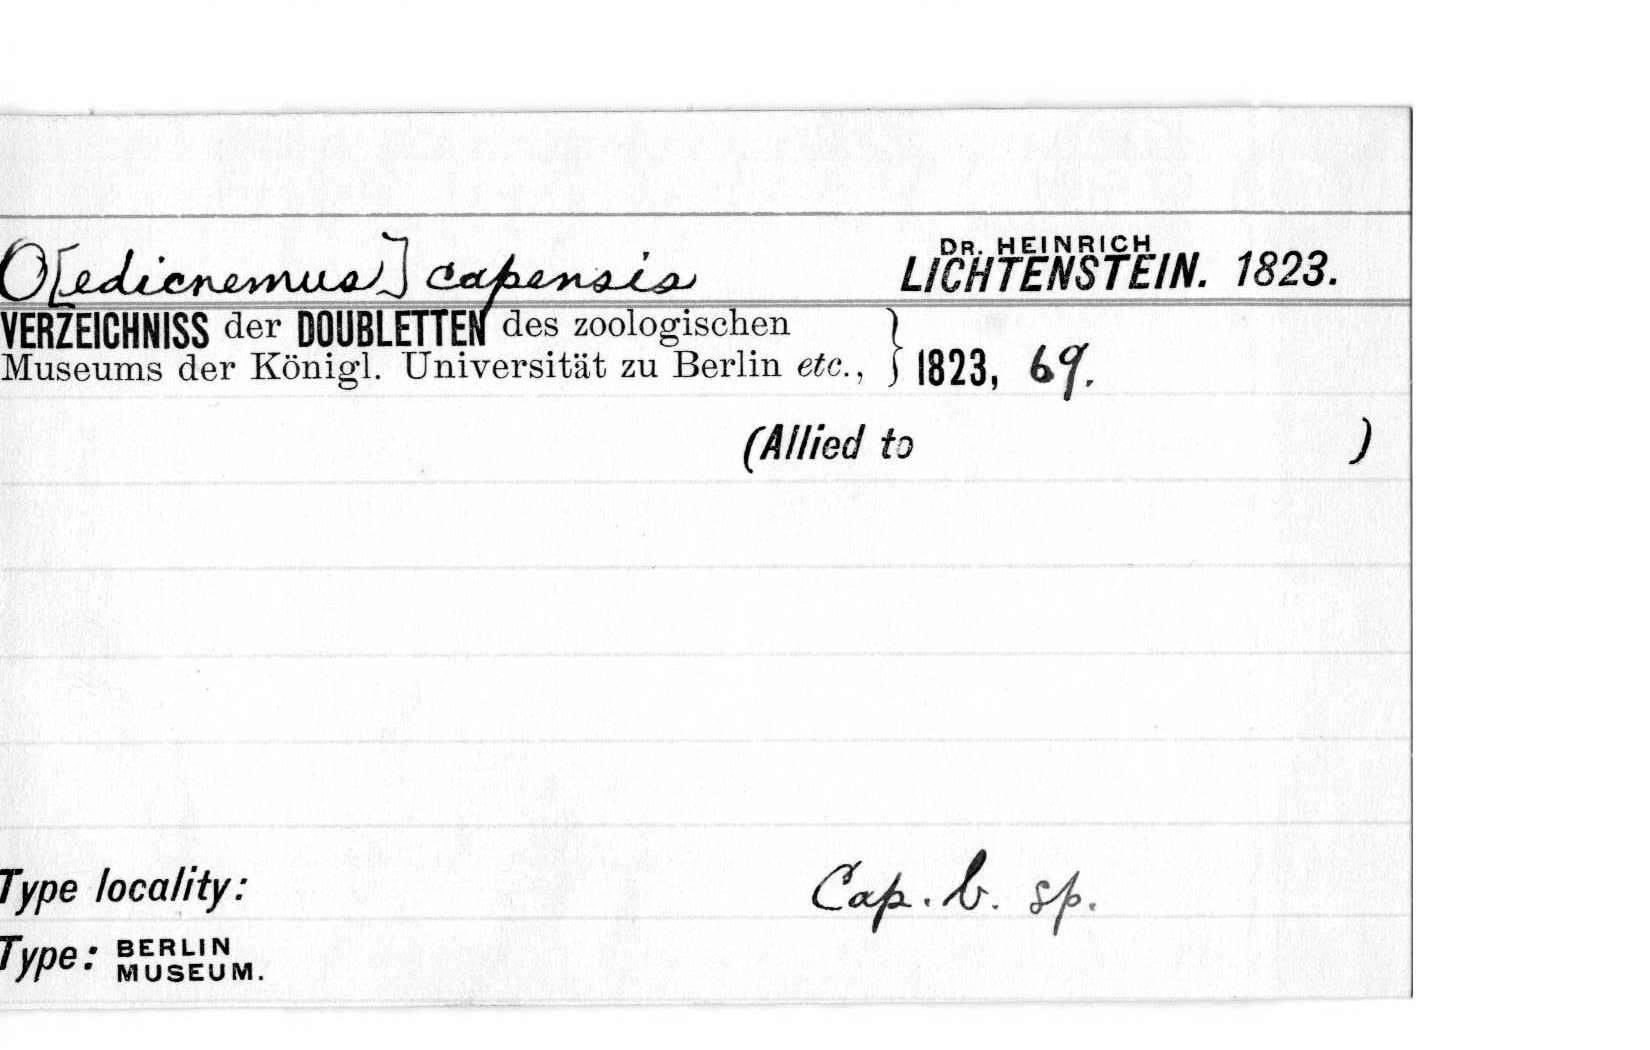 O[edicnemus] capensis DR. HEINRICH LICHTENSTEIN. 1823.
VERZEICHNISS der DOUBLETTEN des zoologischen
Museums der Königl. Universität zu Berlin etc., } 1823, 69.
(Allied to )
Type locality: Cap. b. sp.
Type: BERLIN MUSEUM.